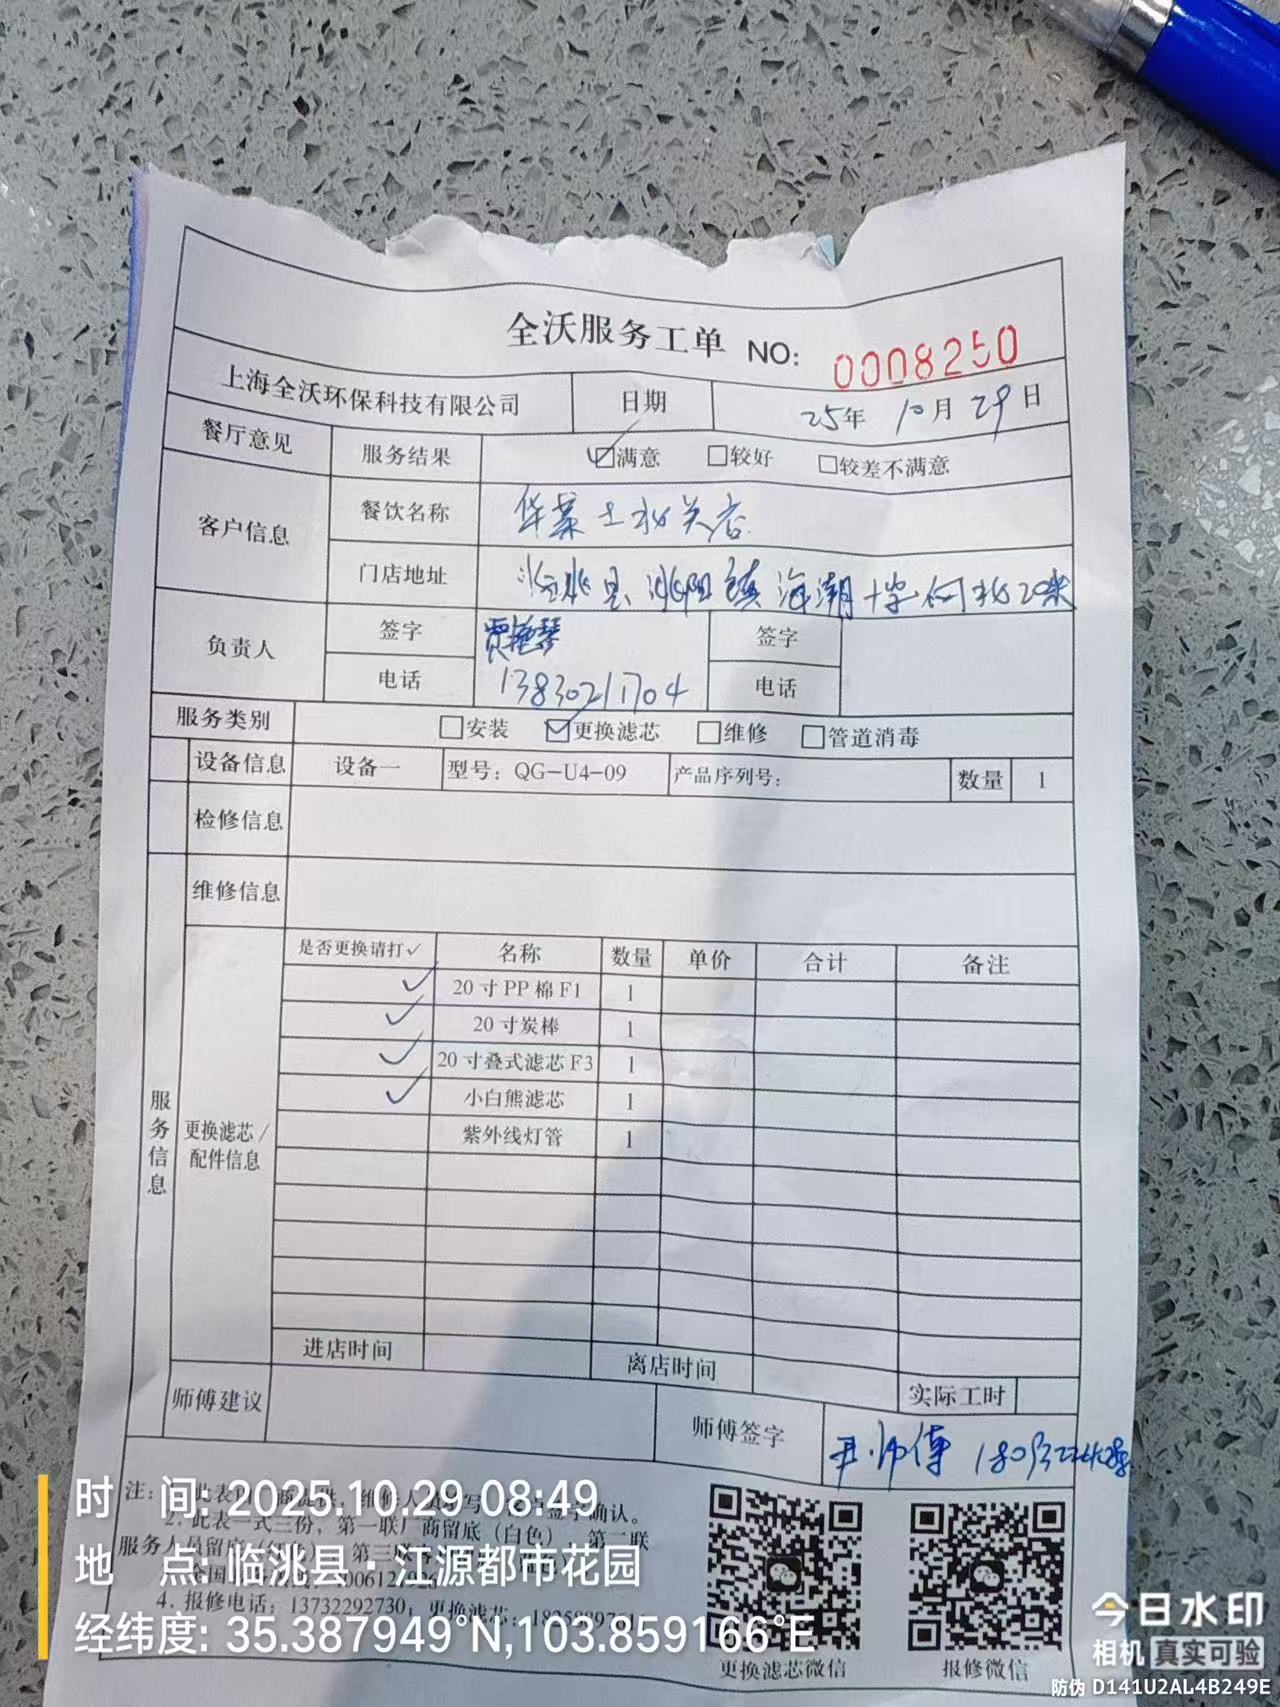 全沃服务工单 NO: 0008250
上海全沃环保科技有限公司 日期 25年 10月 29日
餐厅意见 服务结果 ☑满意 □较好 □较差不满意
客户信息 餐饮名称 华莱士北关店
门店地址 临洮县洮阳镇海潮十字向北20米
负责人 签字 签字
电话 13830211704 电话
服务类别 □安装 ☑更换滤芯 □维修 □管道消毒
设备信息 设备一 型号: QG-U4-09 产品序列号: 数量 1
检修信息
维修信息
服务信息
更换滤芯/配件信息
是否更换请打✓ 名称 数量 单价 合计 备注
✓ 20寸PP棉F1 1
✓ 20寸炭棒 1
✓ 20寸叠式滤芯F3 1
✓ 小白熊滤芯 1
紫外线灯管 1
进店时间 离店时间
实际工时
师傅建议 师傅签字 尹师傅
注:
2. 此表一式三份, 第一联厂商留底(白色), 第二联
服务人员留底
4. 报修电话: 13732292730; 更换滤芯:
更换滤芯微信 报修微信
时 间: 2025.10.29 08:49
地 点: 临洮县·江源都市花园
经纬度: 35.387949°N,103.859166°E
今日水印
相机 真实可验
防伪 D141U2AL4B249E